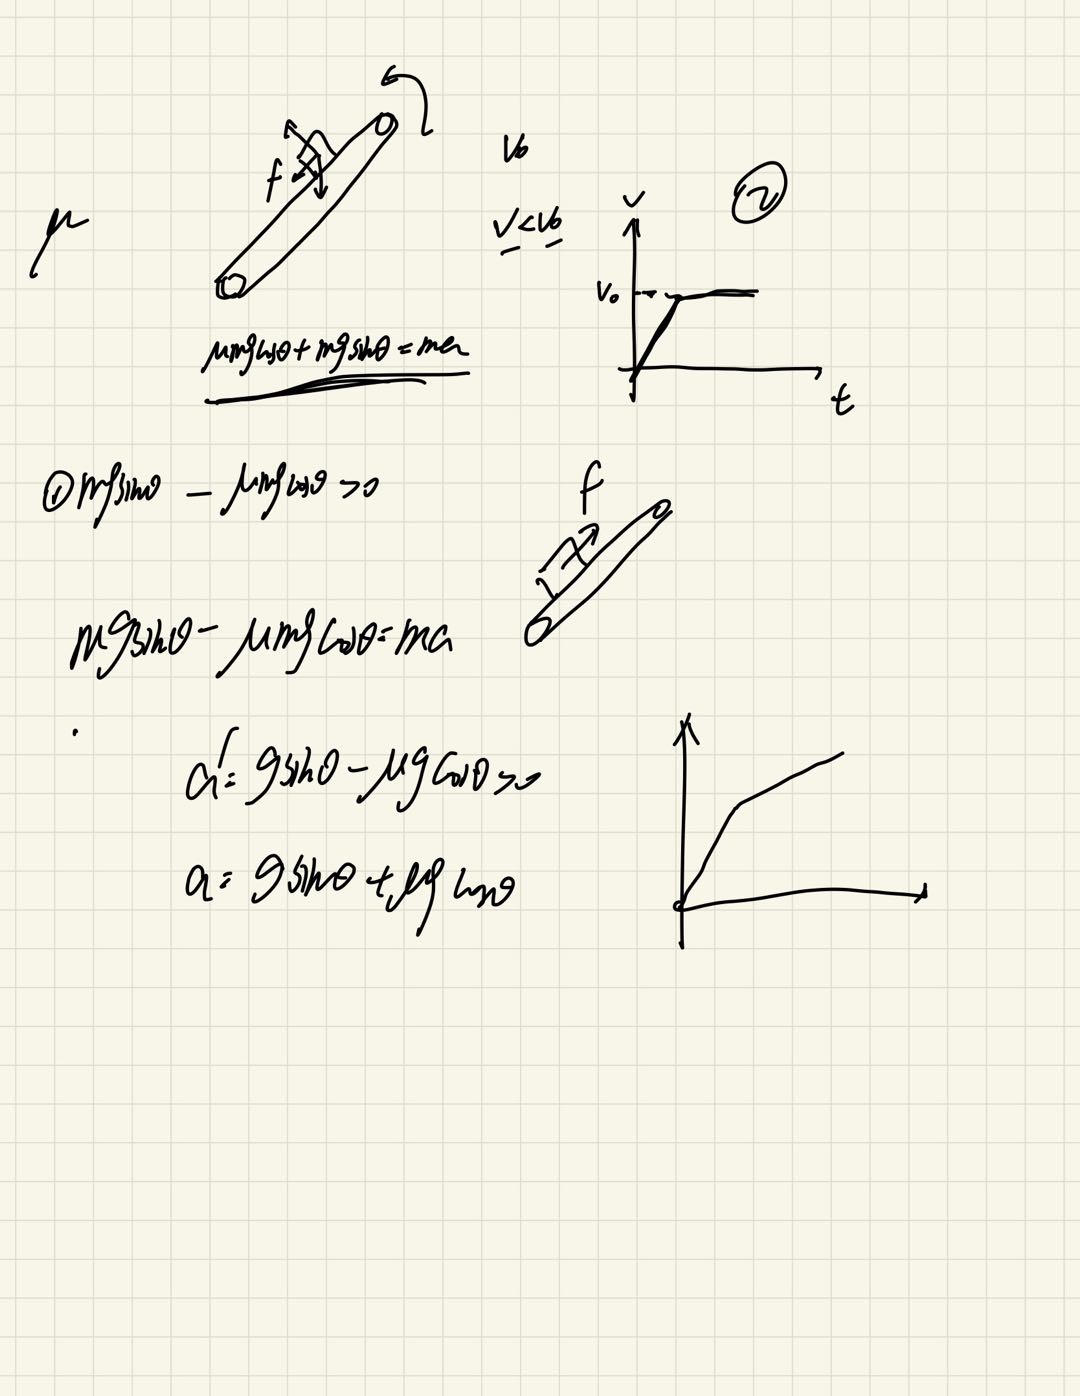 V₀
②
V
f
μ
V<V₀
V₀
μmgcosθ+mgsinθ=ma
t
①mgsinθ - μmgcosθ>0
f
mgsinθ-μmgcosθ=ma
a'=gsinθ-μgcosθ>0
a=gsinθ+μgcosθ